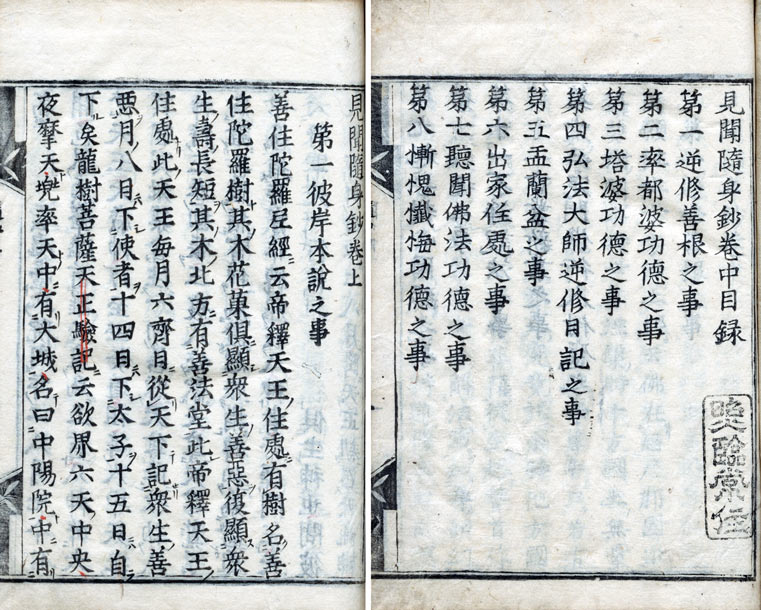 見聞隨身鈔卷中目録
第一逆修善根之事
第二率都婆功德之事
第三塔婆功德之事
第四弘法大師逆修日記之事
第五盂蘭盆之事
第六出家住處之事
第七聽聞佛法功德之事
第八慚愧懺悔功德之事
臨常住
見聞隨身鈔卷上
第一彼岸本說之事
善住陀羅尼經云帝釋天王住處有樹名善
住陀羅樹其木花菓俱顯衆生善惡復顯衆
生壽長短其木北方有善法堂此帝釋天王
住處此天王每月六齊日從天下記衆生善
悪月八日下使者十四日下太子十五日自
下矣龍樹菩薩天正驗記云欲界六天中央
夜摩天兜率天中有大城名曰中陽院中有